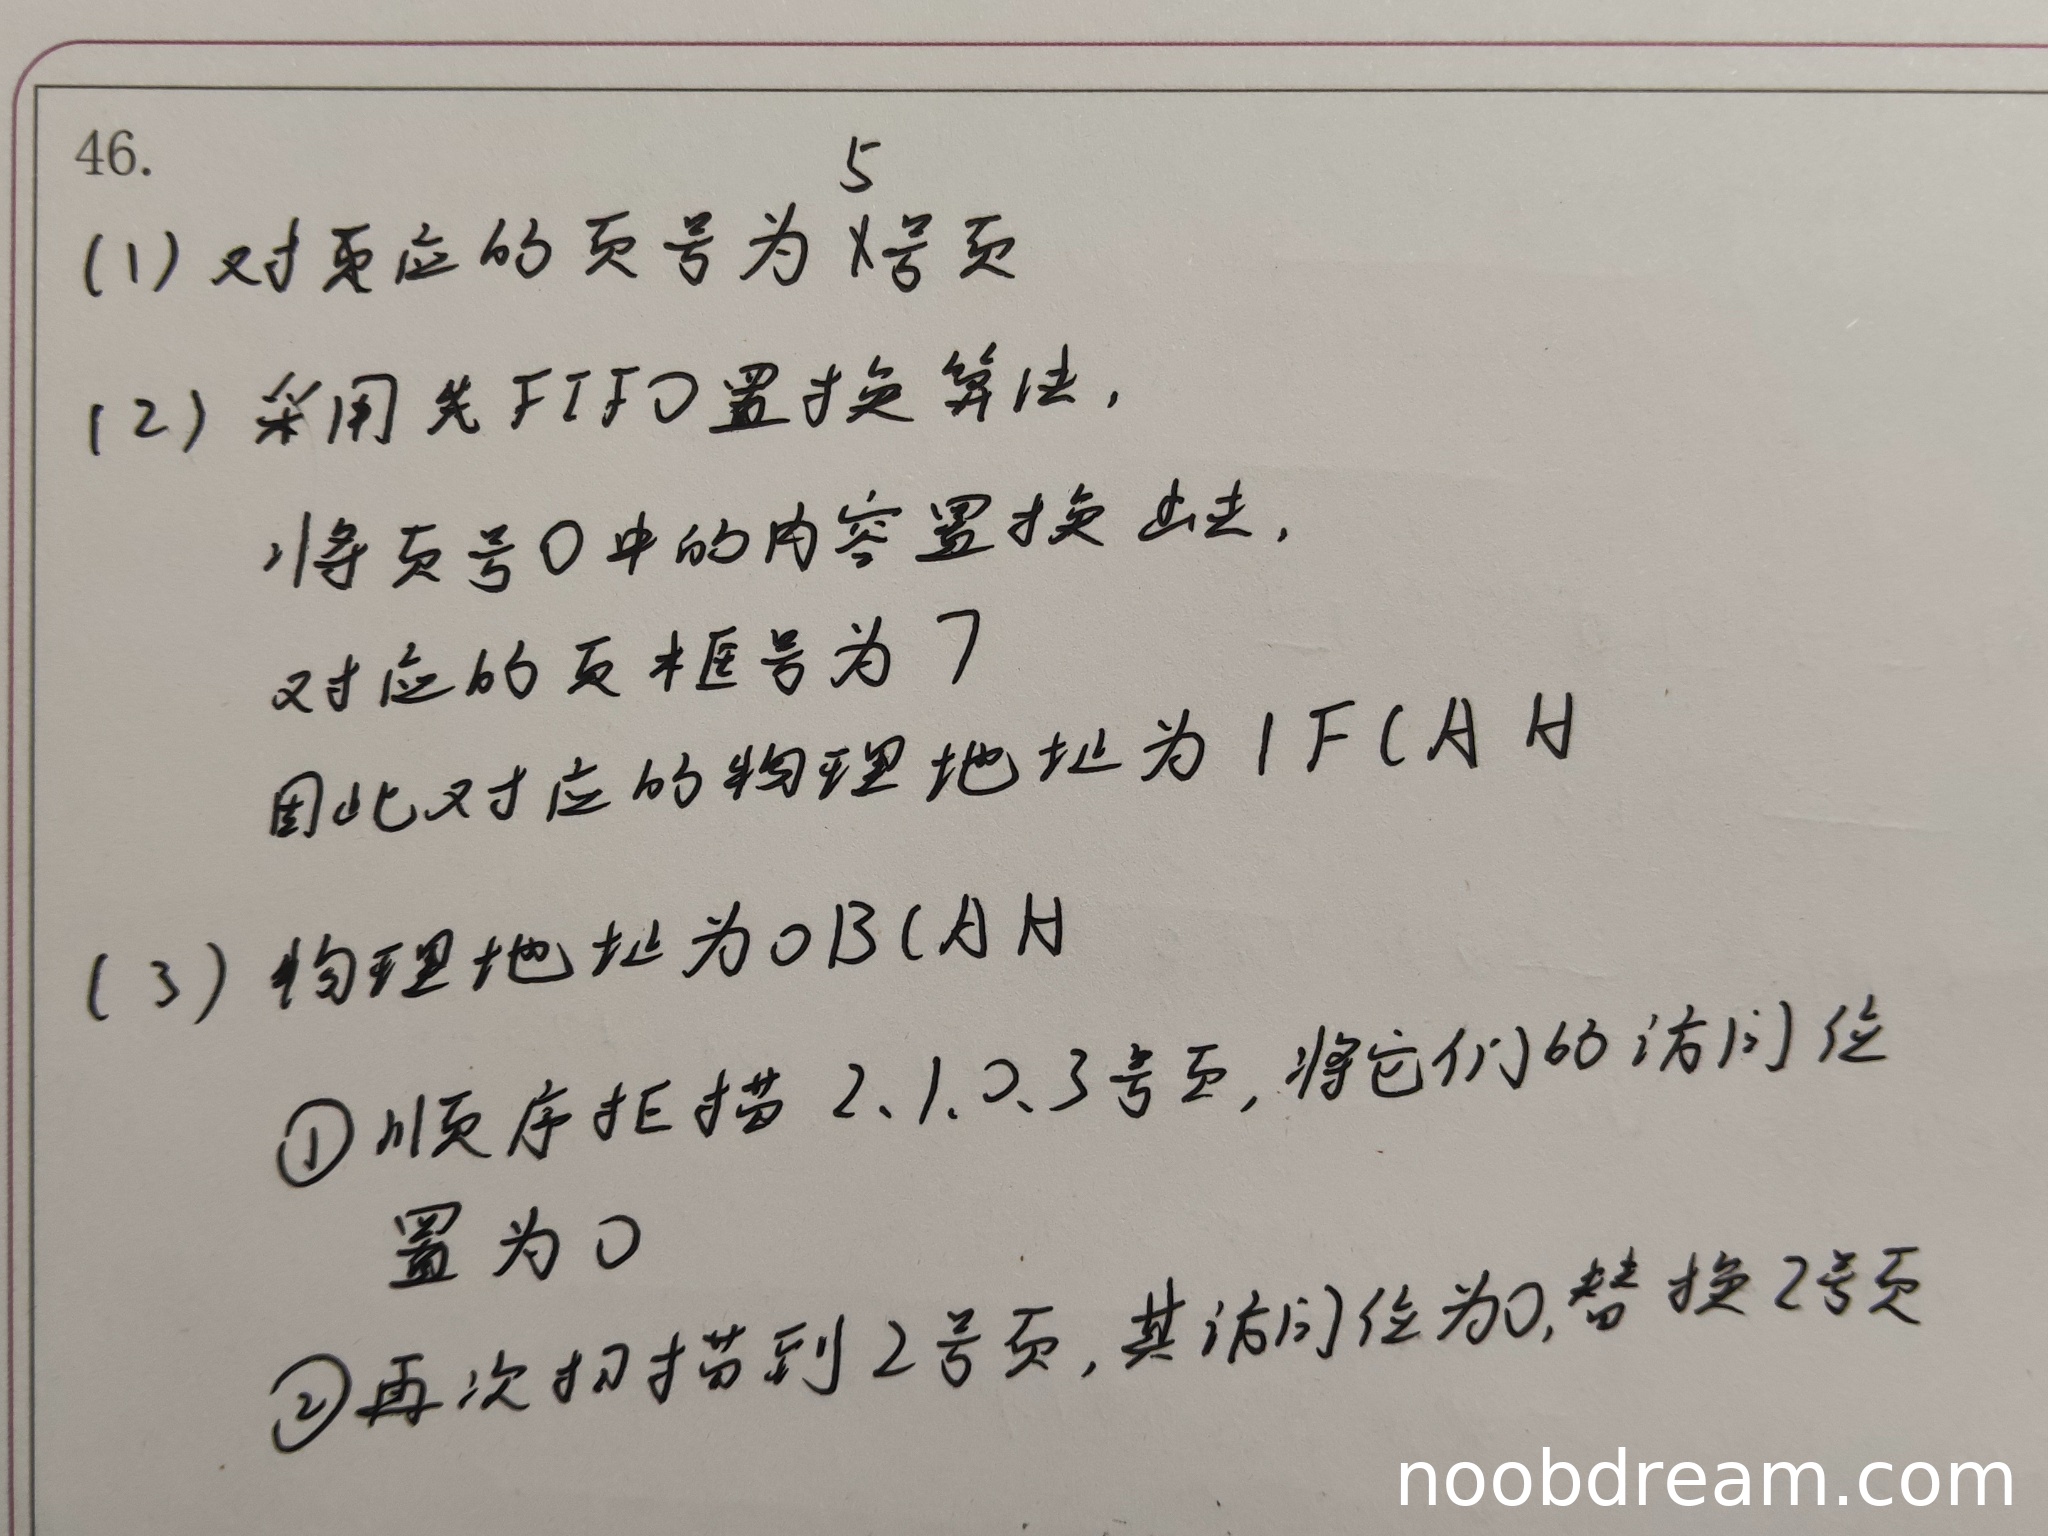 46.
5
(1) 对应的页号为号页
(2) 采用先FIFO置换算法,
将页号0中的内容置换出去,
对应的页框号为7
因此对应的物理地址为1FCAH
(3) 物理地址为0BCAH
①顺序扫描2、1、0、3号页,将它们的访问位
置为0
②再次扫描到2号页,其访问位为0,替换2号页
noobdream.com